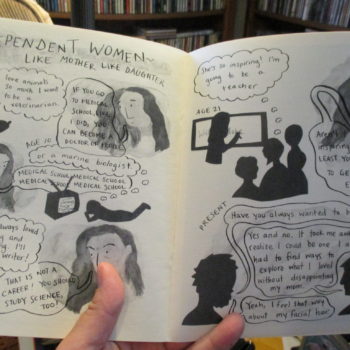 PENDENT WOMEN~
LIKE MOTHER LIKE DAUGHTER
love animals
so much, I want
to be a
veterinarian.
IF YOU GO
TO MEDICAL
SCHOOL, LIKE
I DID, YOU
CAN BECOME A
DOCTOR OF PEOPLE
AGE 10
or a marine biologist.
MEDICAL SCHOOL, MEDICAL SCHOOL,
MEDICAL SCHOOL, MEDICAL SCHOOL
always loved
and
I'll
writer!
THAT IS NOT A
CAREER! YOU SHOULD
STUDY SCIENCE,
TOO!
She's so inspiring! I'm
going to be a
teacher
AGE 21
inspiring
LEAST, YOU
TO GE
PRESENT
Have you always wanted to b
Yes and no. It took me a
realize I could be one. I a
had to find ways to
explore what I loved
without disappointing
my mom.
Yeah, I feel that way
about my facial hair.